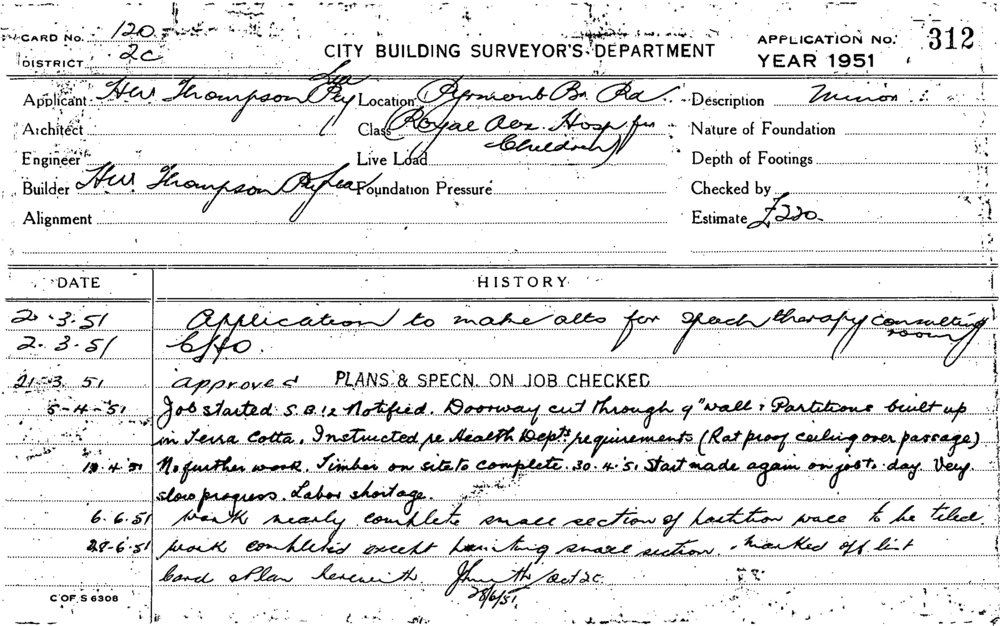 CARD No. 120
DISTRICT 2C
CITY BUILDING SURVEYOR'S DEPARTMENT
APPLICATION No. 312
YEAR 1951
Applicant H W Thompson Pty Location Pyrmont Br. Rd Description Minor
Architect Class (Royal Alex. Hosp for Children) Nature of Foundation
Engineer Live Load Depth of Footings
Builder H W Thompson Pty Foundation Pressure Checked by
Alignment Estimate £220
DATE HISTORY
2.3.51 Application to make alts for speech therapy consulting room
2.3.51 CHO.
21-3.51 approved PLANS & SPECN. ON JOB CHECKED
5-4-51 Job started S.B.12 Notified. Doorway cut through 9" wall & Partitions built up
in Terra Cotta. Instructed re Health Dept's requirements (Rat proof ceiling over passage)
.4.51 No further work. Timber on site to complete. 30.4.51 Start made again on job to-day. Very
slow progress. Labor shortage.
6.6.51 Work nearly complete small section of partition wall to be tiled
28-6-51 Work completed except painting small section. Marked off list
Card & Plan herewith 2C
28/6/51
C OF S 6308